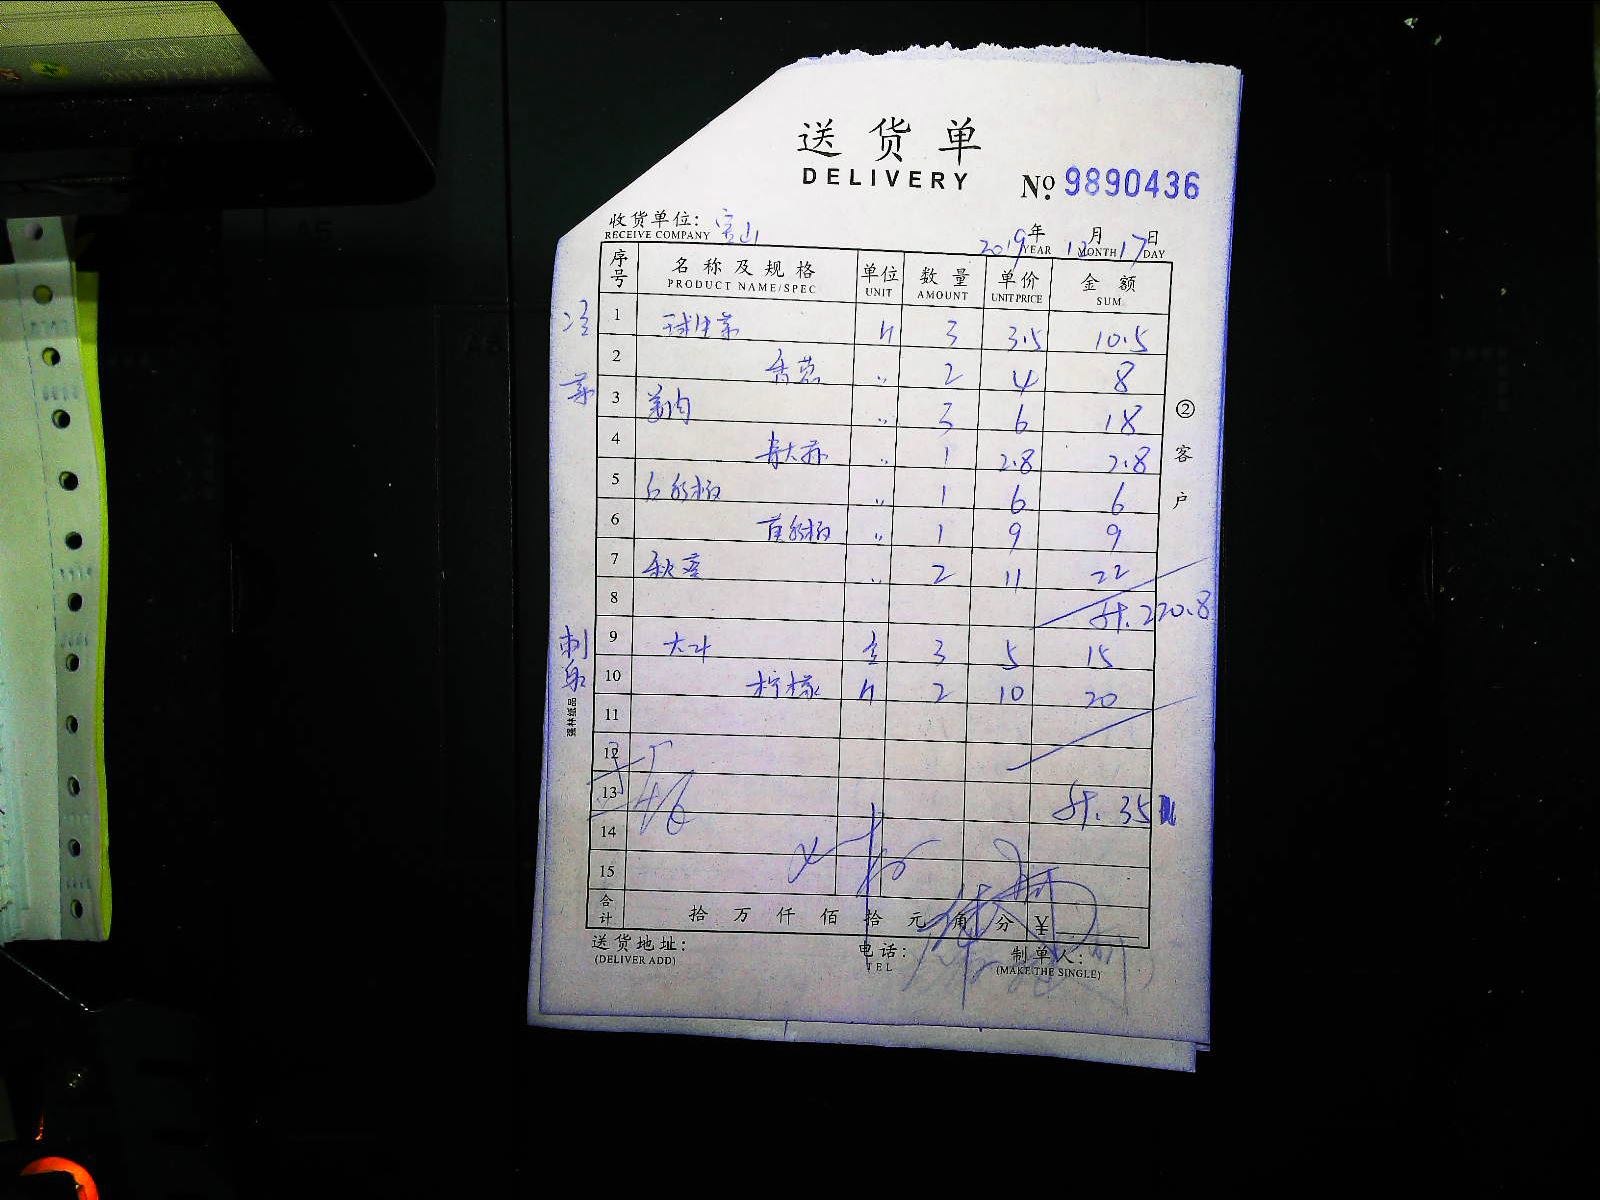 送货单
DELIVERY
№ 9890436
收货单位: 宝山
RECEIVE COMPANY
2019年 12月 17日
YEAR MONTH DAY
序号 名称及规格 单位 数量 单价 金额
PRODUCT NAME/SPEC UNIT AMOUNT UNIT PRICE SUM
1 球生菜 斤 3 3.5 10.5
2 香葱 〃 2 4 8
3 姜肉 〃 3 6 18
4 青大蒜 〃 1 2.8 2.8
5 〃 1 6 6
6 〃 1 9 9
7 秋葵 〃 2 11 22
8 计.220.8
9 3 5 15
10 柠檬 斤 2 10 20
11
12
13 计.35
14
15
合计 拾 万 仟 佰 拾 元 角 分 ¥
送货地址: 电话: 制单人:
(DELIVER ADD) TEL (MAKE THE SINGLE)
②客户
刺身
强林纸品
20:18
2019/12/17